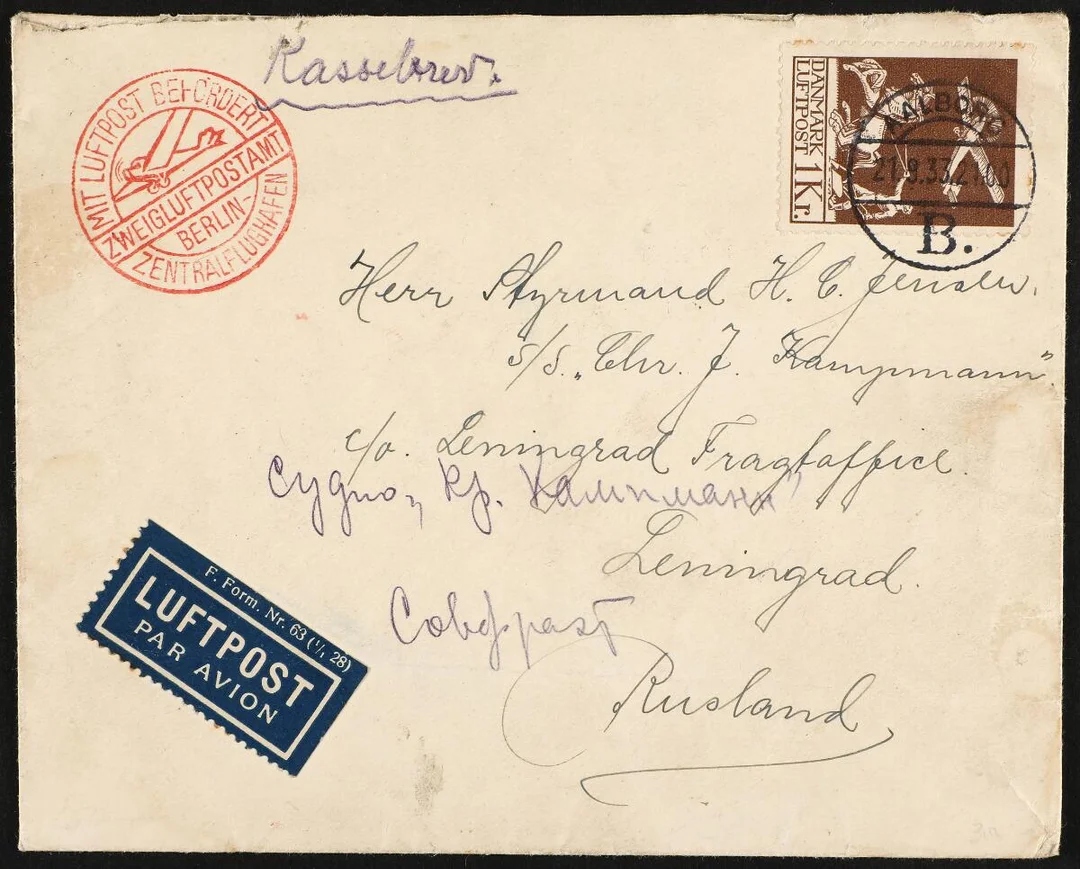 Kassebrev.
MIT LUFTPOST BEFÖRDERT
ZWEIGLUFTPOSTAMT
BERLIN-
ZENTRALFLUGHAFEN
DANMARK
LUFTPOST 1 Kr.
AALBORG
21.9.33.21.00
B.
Herr Styrmand H. C. Jensen.
S/S. „Chr. J. Kampmann"
c/o. Leningrad Fragtoffice.
Судно „Кр. Кампманн"
Leningrad.
Совфрахт
Rusland
F. Form. Nr. 63 (1/1 28)
LUFTPOST
PAR AVION